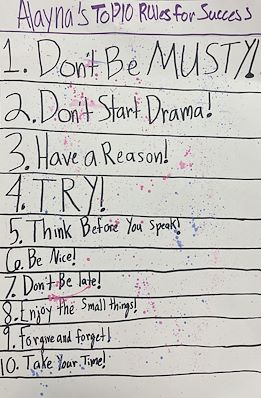 Alayna's Top 10 Rules for Success
1. Don't Be MUSTY!
2. Don't Start Drama!
3. Have a Reason!
4. TRY!
5. Think Before You speak!
6. Be Nice!
7. Don't Be late!
8. Enjoy the small things!
9. Forgive and forget!
10. Take Your Time!